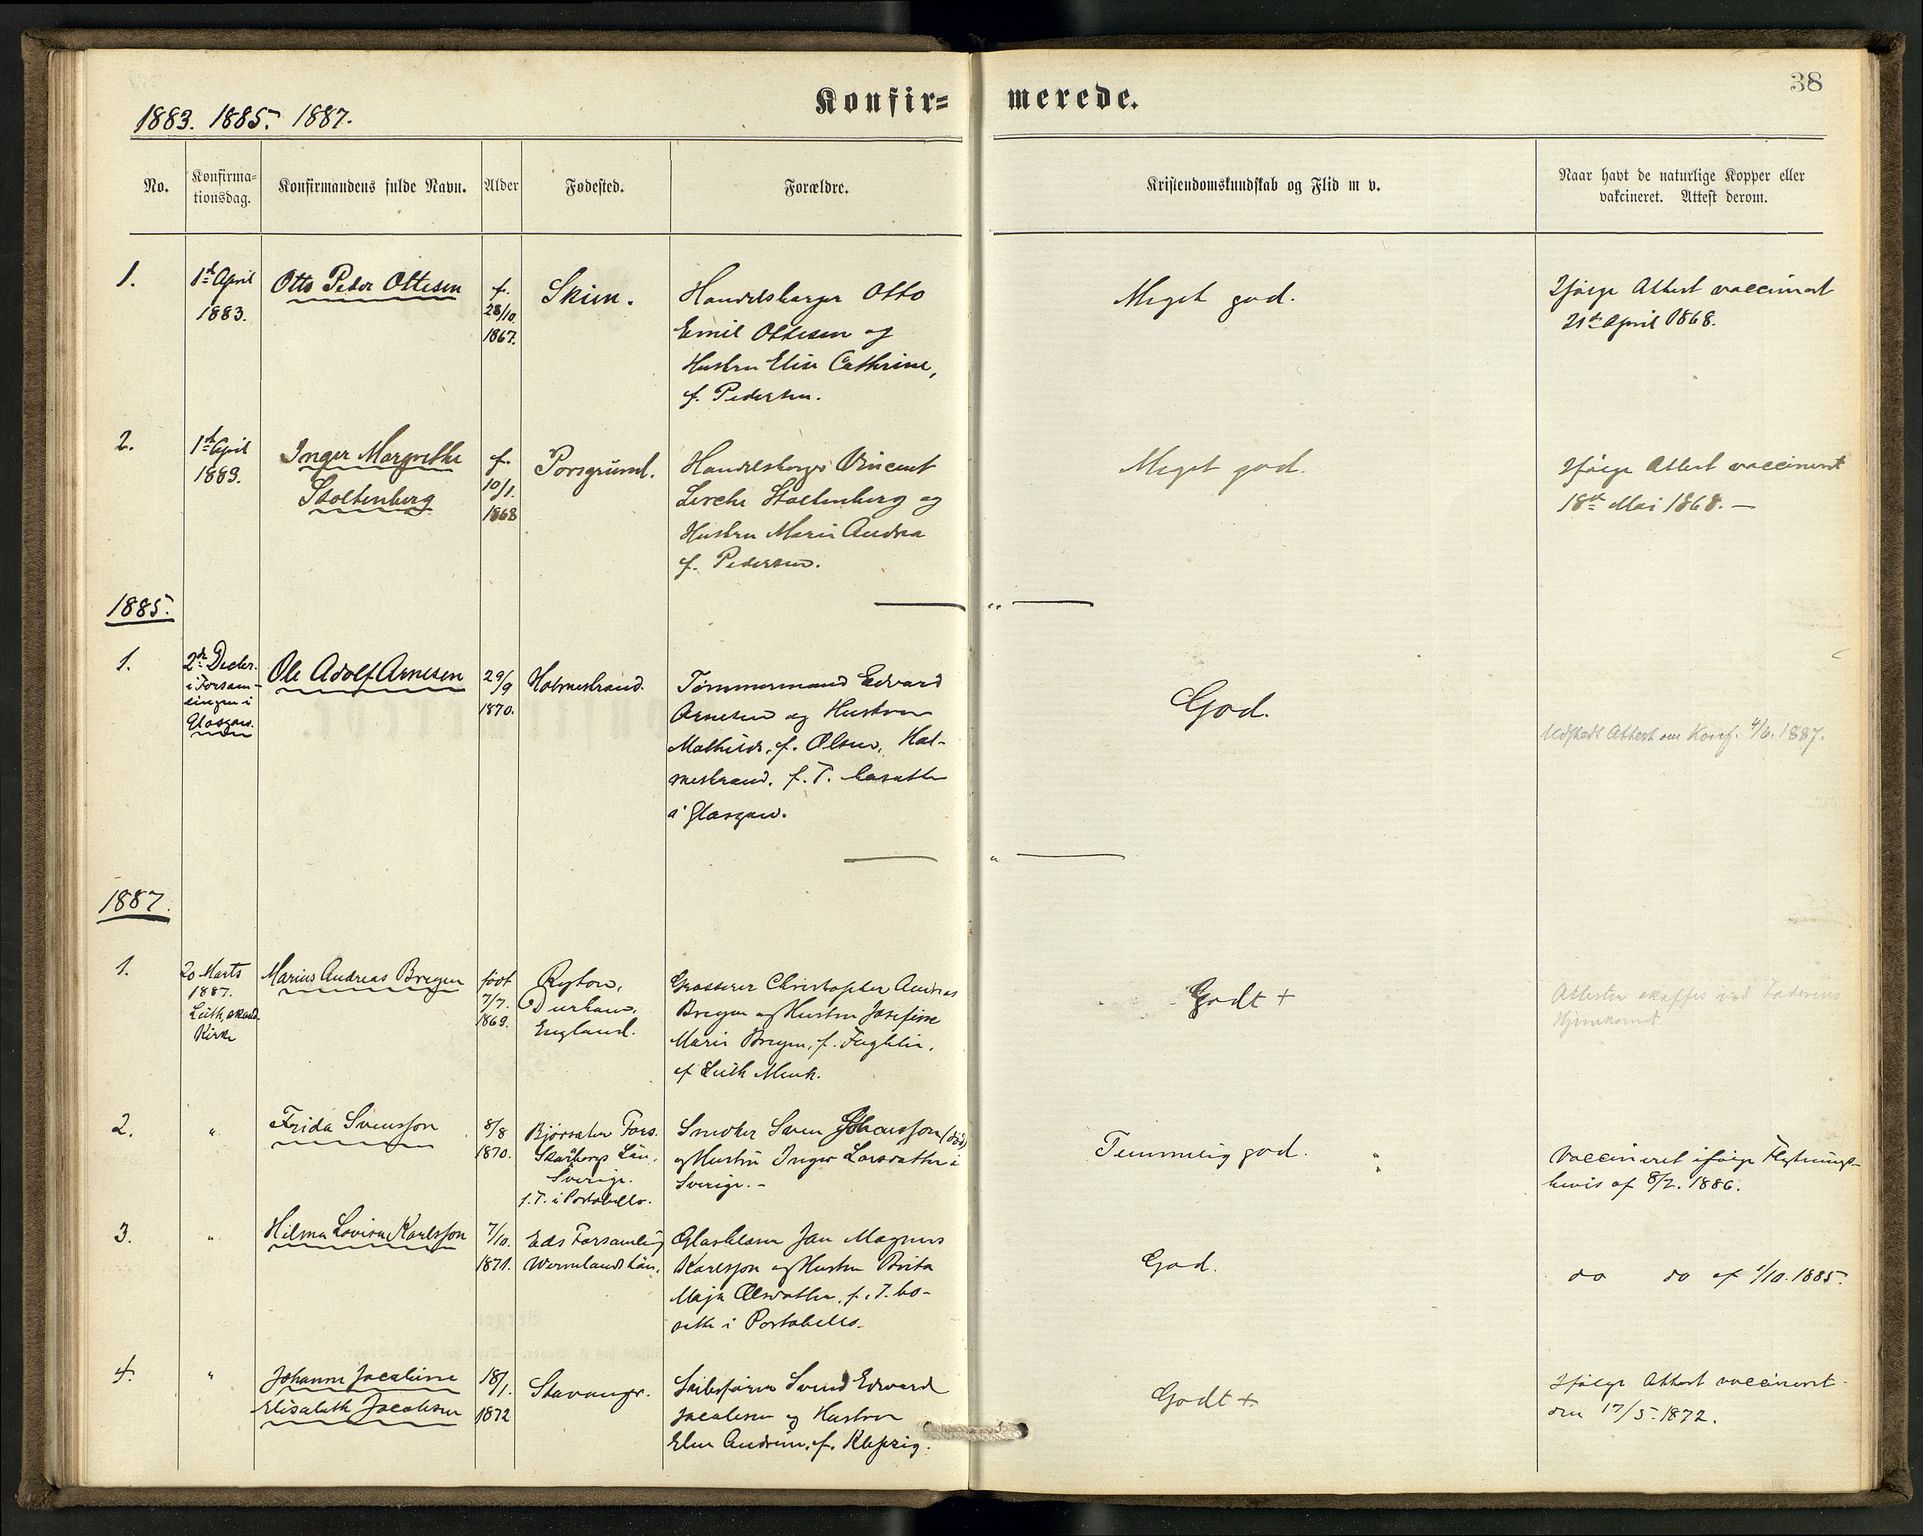 38
1883. 1885. 1887.
Konfirmerede.
No.
Konfirma-
tionsdag.
Konfirmandens fulde Navn.
Alder
Fødested.
Forældre.
Kristendomskundskab og Flid m v.
Naar havt de naturlige Kopper eller
vakcineret. Attest derom.
1.
1ste April
1883.
Otto Peter Ottesen
f.
28/10
1867.
Skien.
Handelsborger Otto
Emil Ottesen og
Hustru Elise Cathrine,
f. Pedersen.
Meget god.
Ifølge Attest vaccineret
21de April 1868.
2.
1ste April
1883.
Inger Margrethe
Stoltenberg
f.
10/1.
1868
Porsgrund.
Handelsborger Vincent
Lerche Stoltenberg og
Hustru Marie Andrea
f. Pedersen.
Meget god.
Ifølge Attest vaccineret
18de Mai 1868. —
1885.
1.
2den Decbr.
i Forsam-
lingen i
Glasgow.
Ole Adolf Arnesen
29/9
1870.
Holmestrand.
Tømmermand Edvard
Arnesen og Hustru
Mathilde, f. Olsen, Hol-
mestrand. f. T. bosatte
i Glasgow.
God.
Udstedt Attest om Konf. 4/6. 1887.
1887.
1.
20 Marts
1887.
Leith skand.
Kirke
Marius Andreas Breyen
født
7/7.
1869.
Ryton,
Durham,
England.
Grosserer Christopher Andreas
Breyen og Hustru Josefine
Marie Breyen, f.
af Leith Menh.
Godt +
Attesten skaffes ved Faderens
Hjemkomst.
2.
"
Frida Svensson
8/8
1870.
Bjørsater Fors.
Skarborgs Län,
Sverige.
f. T. i Portobello.
Snedker Sven Johansson (død)
og Hustru Inger Larsdatter i
Sverige. -
Temmelig god.
Vaccineret ifølge Flytnings-
bevis af 8/2. 1886.
3.
"
Hilma Lovisa Karlsson
7/10.
1871.
Eds Forsamling
Wermlands Län.
Glasblæser Jan Magnus
Karlsson og Hustru Brita
Maja Olsdatter, f. T. bo-
satte i Portobello.
God.
do do af 1/10. 1885.
4.
"
Johanne Jacobine
Elisabeth Jacobsen
18/1.
1872
Stavanger.
Skibsfører Svend Edvard
Jacobsen og Hustru
Elen Andrine, f. Kleppig.
Godt +
Ifølge Attest vaccineret
den 17/5. 1872.